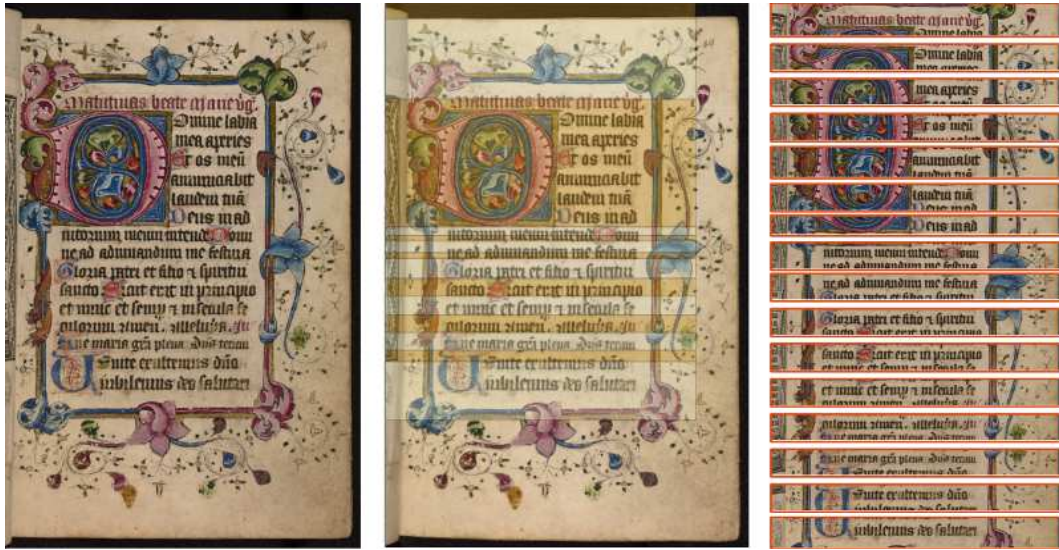 Matutinas beate marie vg̃.
Domine labia
mea aperies
Et os meū
annunciabit
laudem tuā
Deus in ad
iutorium meum intende Domi
ne ad adiuuandum me festina
Gloria patri et filio ⁊ spiritui
sancto Sicut erat in principio
et nunc et semp ⁊ in secula se
culorum Amen. Alleluia.
Aue maria grā plena dn̄s tecum
Uenite exultemus dn̄o
iubilemus deo salutari